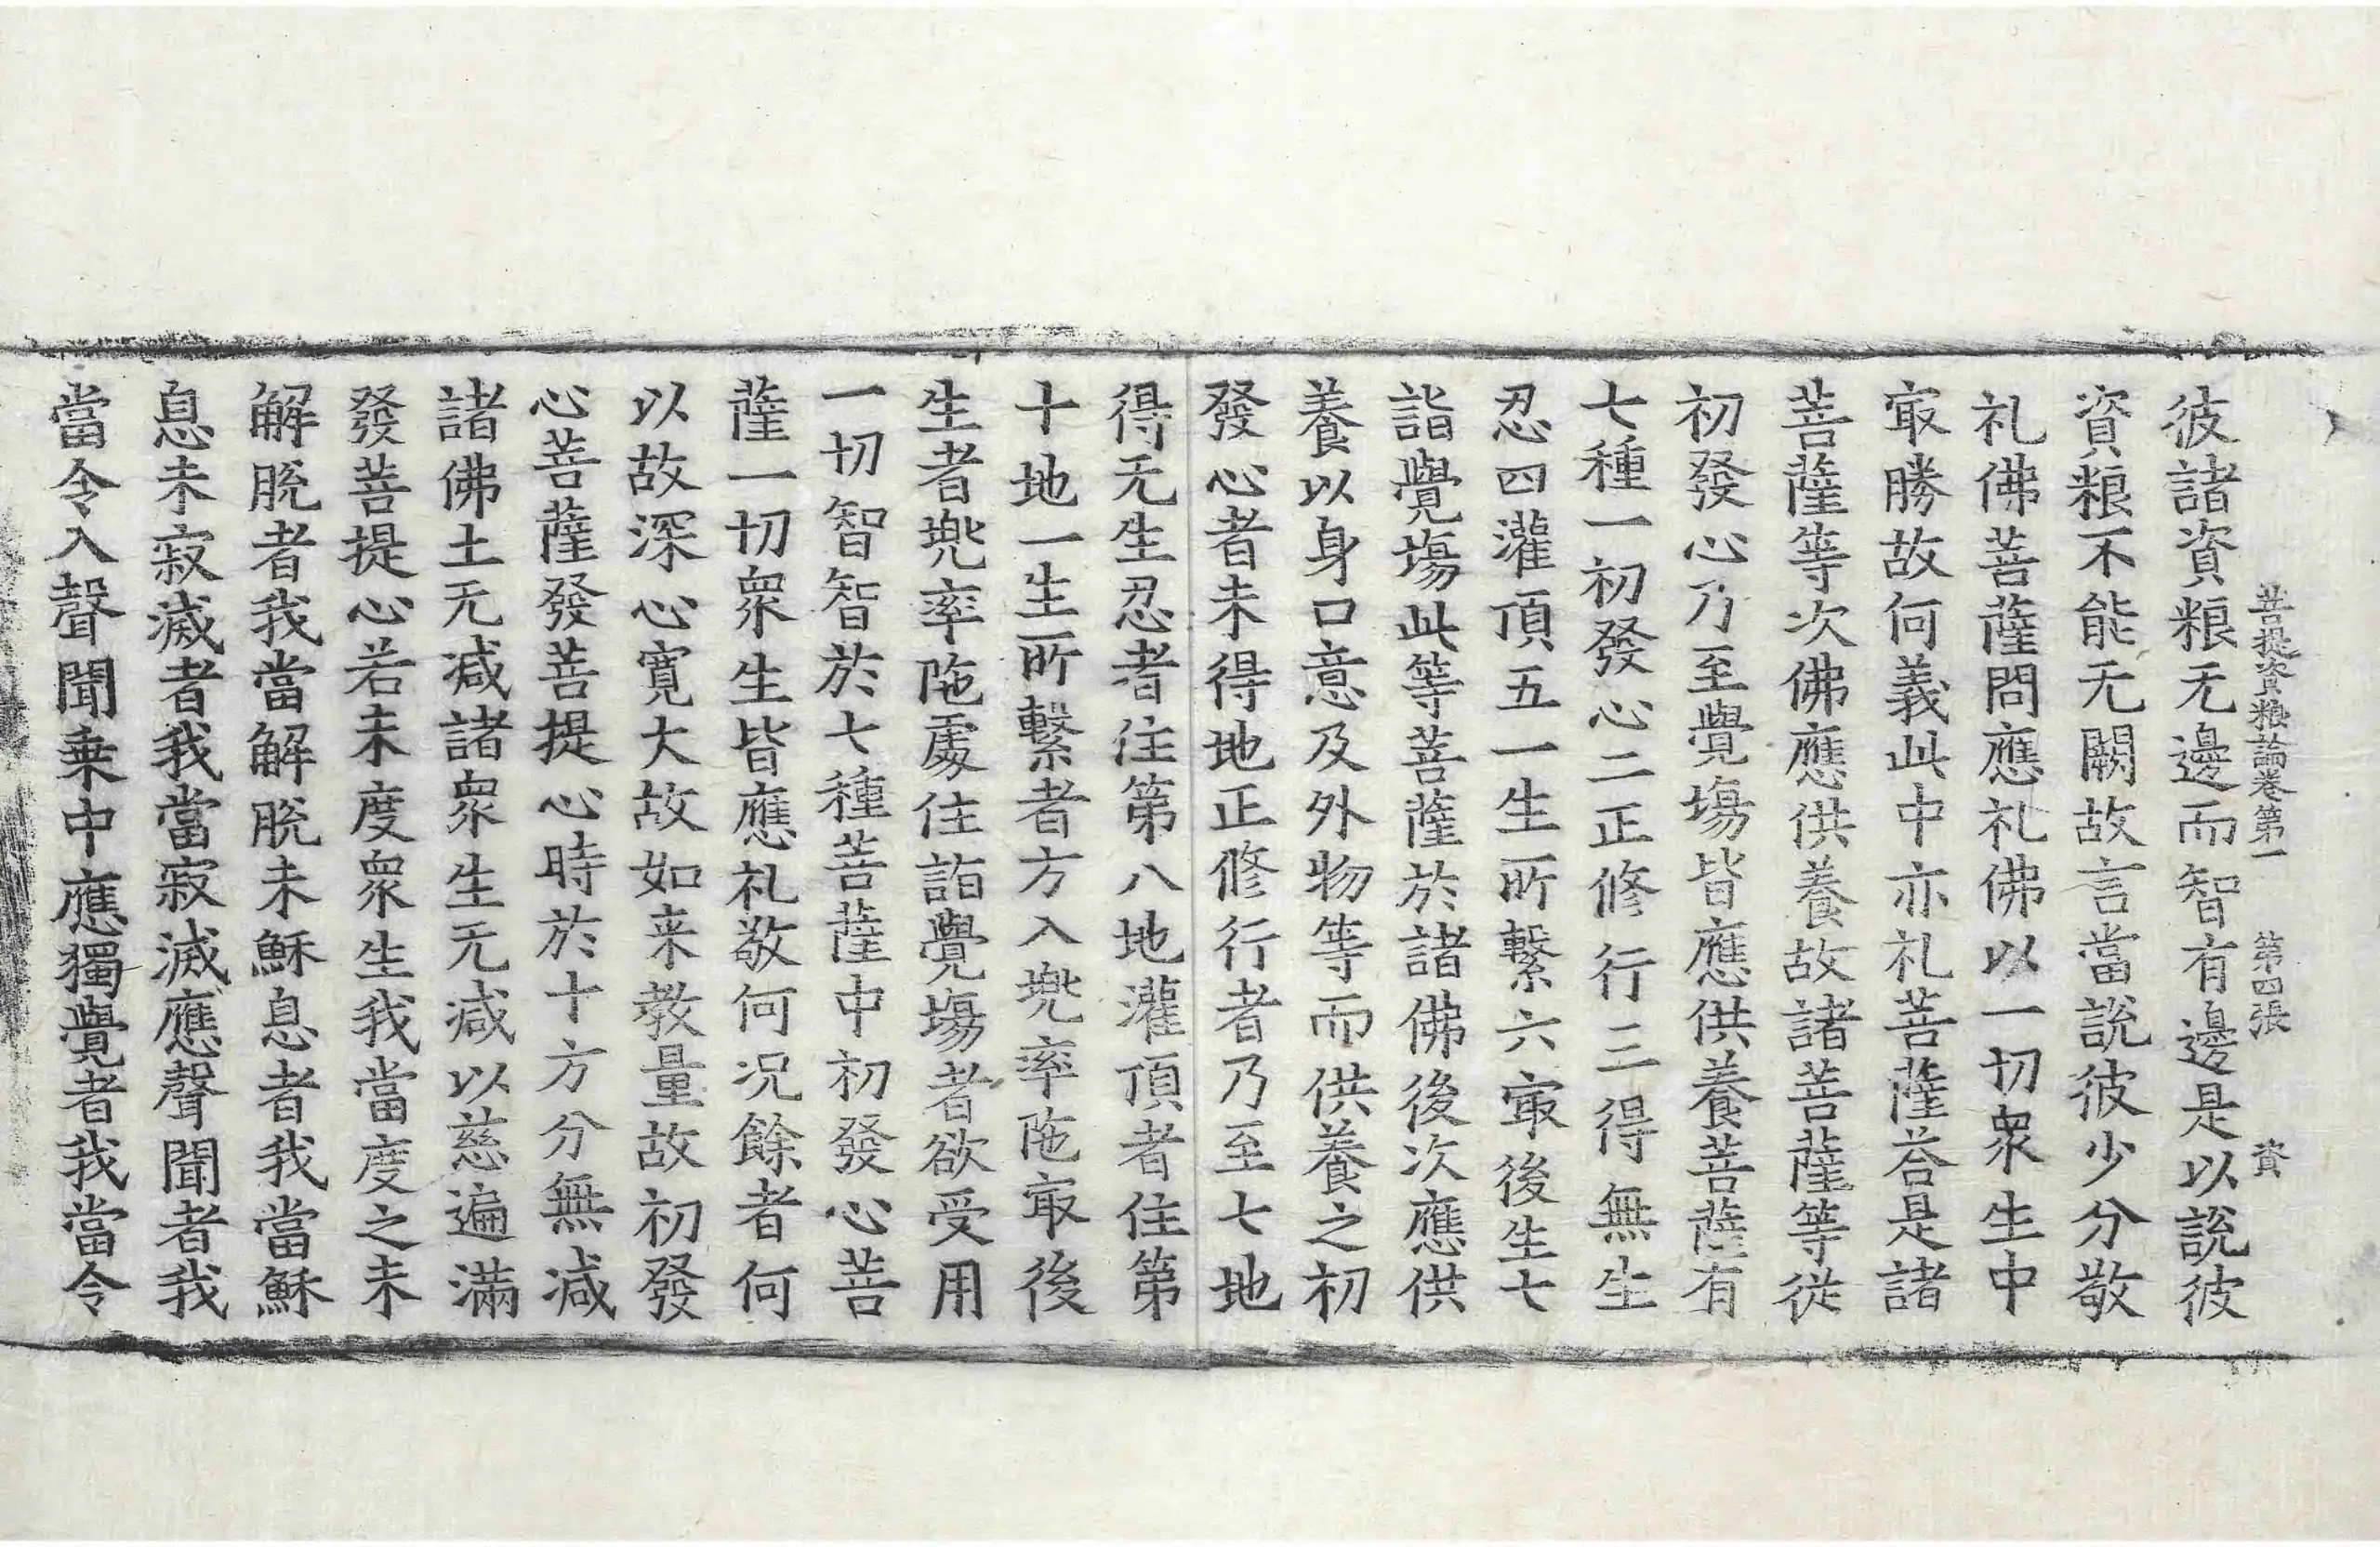 菩提資粮論卷第一　第四張　資
彼諸資粮无邊而智有邊是以說彼
資粮不能无闕故言當說彼少分敬
礼佛菩薩問應礼佛以一切衆生中
㝡勝故何義此中亦礼菩薩荅是諸
菩薩等次佛應供養故諸菩薩等從
初發心乃至覺場皆應供養菩薩有
七種一初發心二正修行三得無生
忍四灌頂五一生所繫六㝡後生七
詣覺場此等菩薩於諸佛後次應供
養以身口意及外物等而供養之初
發心者未得地正修行者乃至七地
得无生忍者住第八地灌頂者住第
十地一生所繫者方入兠率陁㝡後
生者兠率陁處住詣覺場者欲受用
一切智智於七種菩薩中初發心菩
薩一切衆生皆應礼敬何況餘者何
以故深心寬大故如来教量故初發
心菩薩發菩提心時於十方分無减
諸佛土无减諸衆生无减以慈遍滿
發菩提心若未度衆生我當度之未
解脫者我當解脫未穌息者我當穌
息未寂滅者我當寂滅應聲聞者我
當令入聲聞乗中應獨覺者我當令